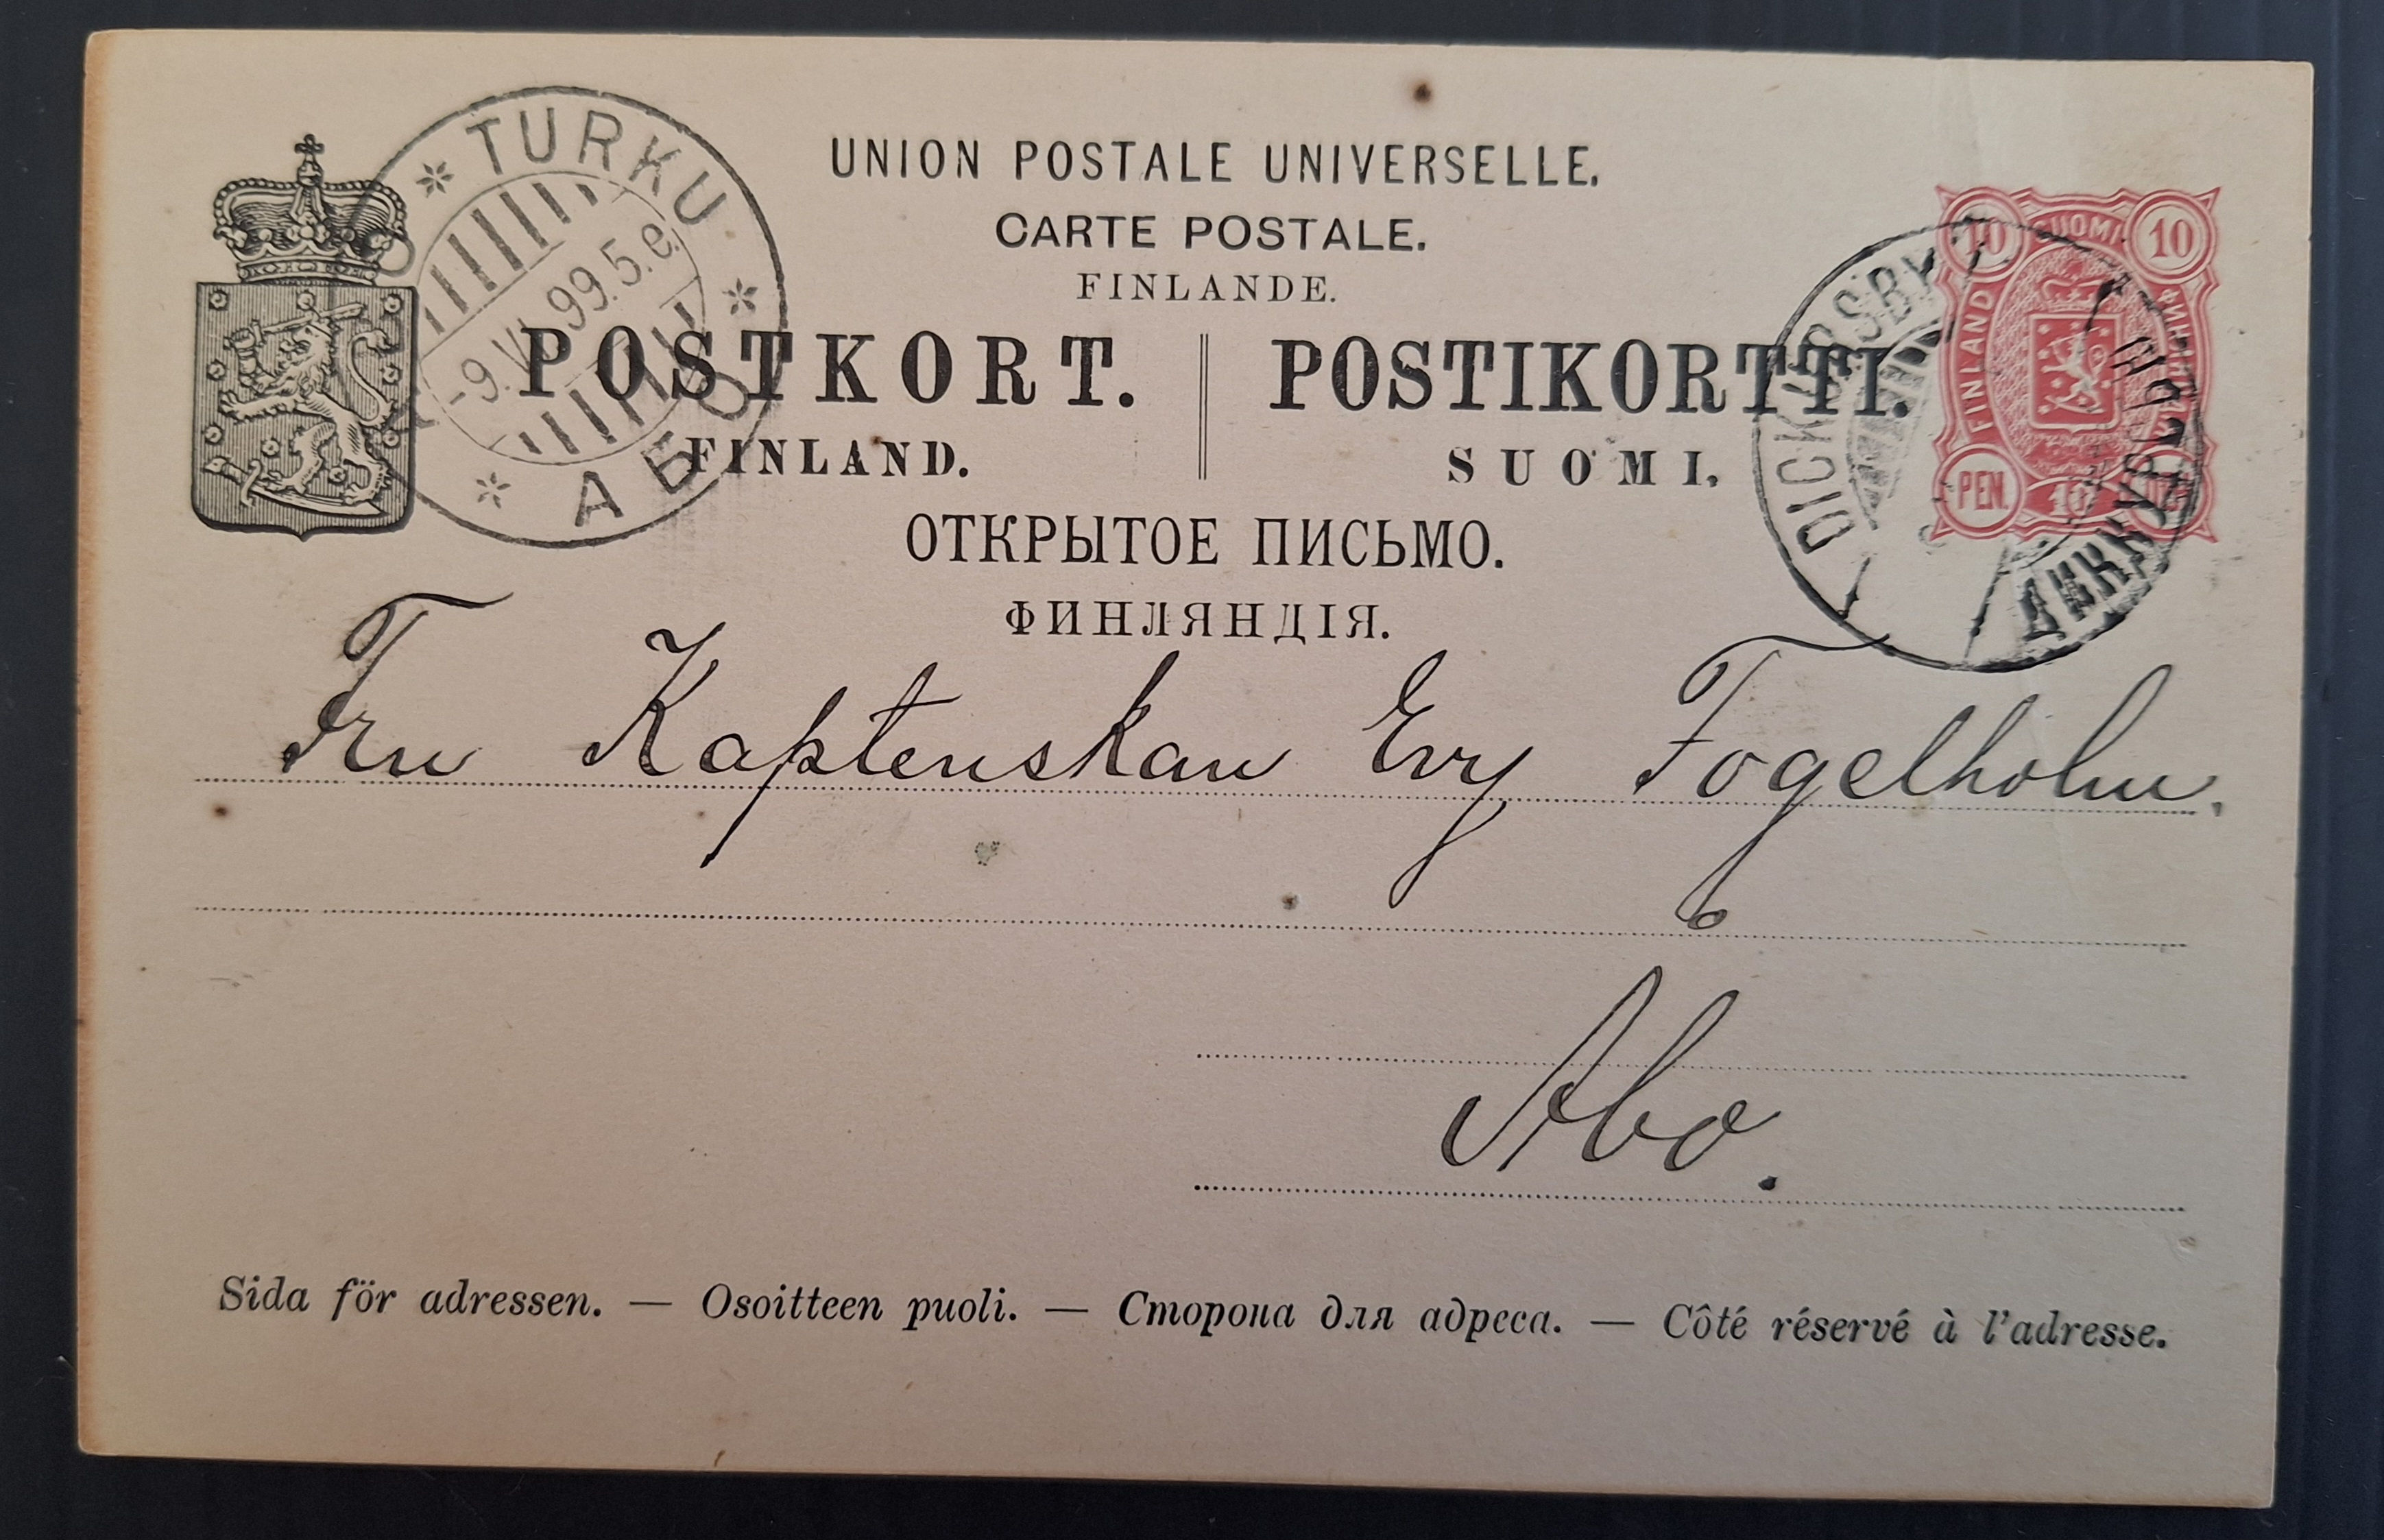 UNION POSTALE UNIVERSELLE.
CARTE POSTALE.
FINLANDE.
POSTKORT. POSTIKORTTI.
FINLAND. SUOMI.
ОТКРЫТОЕ ПИСЬМО.
ФИНЛЯНДІЯ.
TURKU
99.5.e.
АБО
10 SUOMI 10
FINLAND
PEN. 10
DICKURSBY
ДИККУРСБИ
Fru Kaptenskan Evy Fogelholm.
Åbo.
Sida för adressen. — Osoitteen puoli. — Сторона для адреса. — Côté réservé à l'adresse.